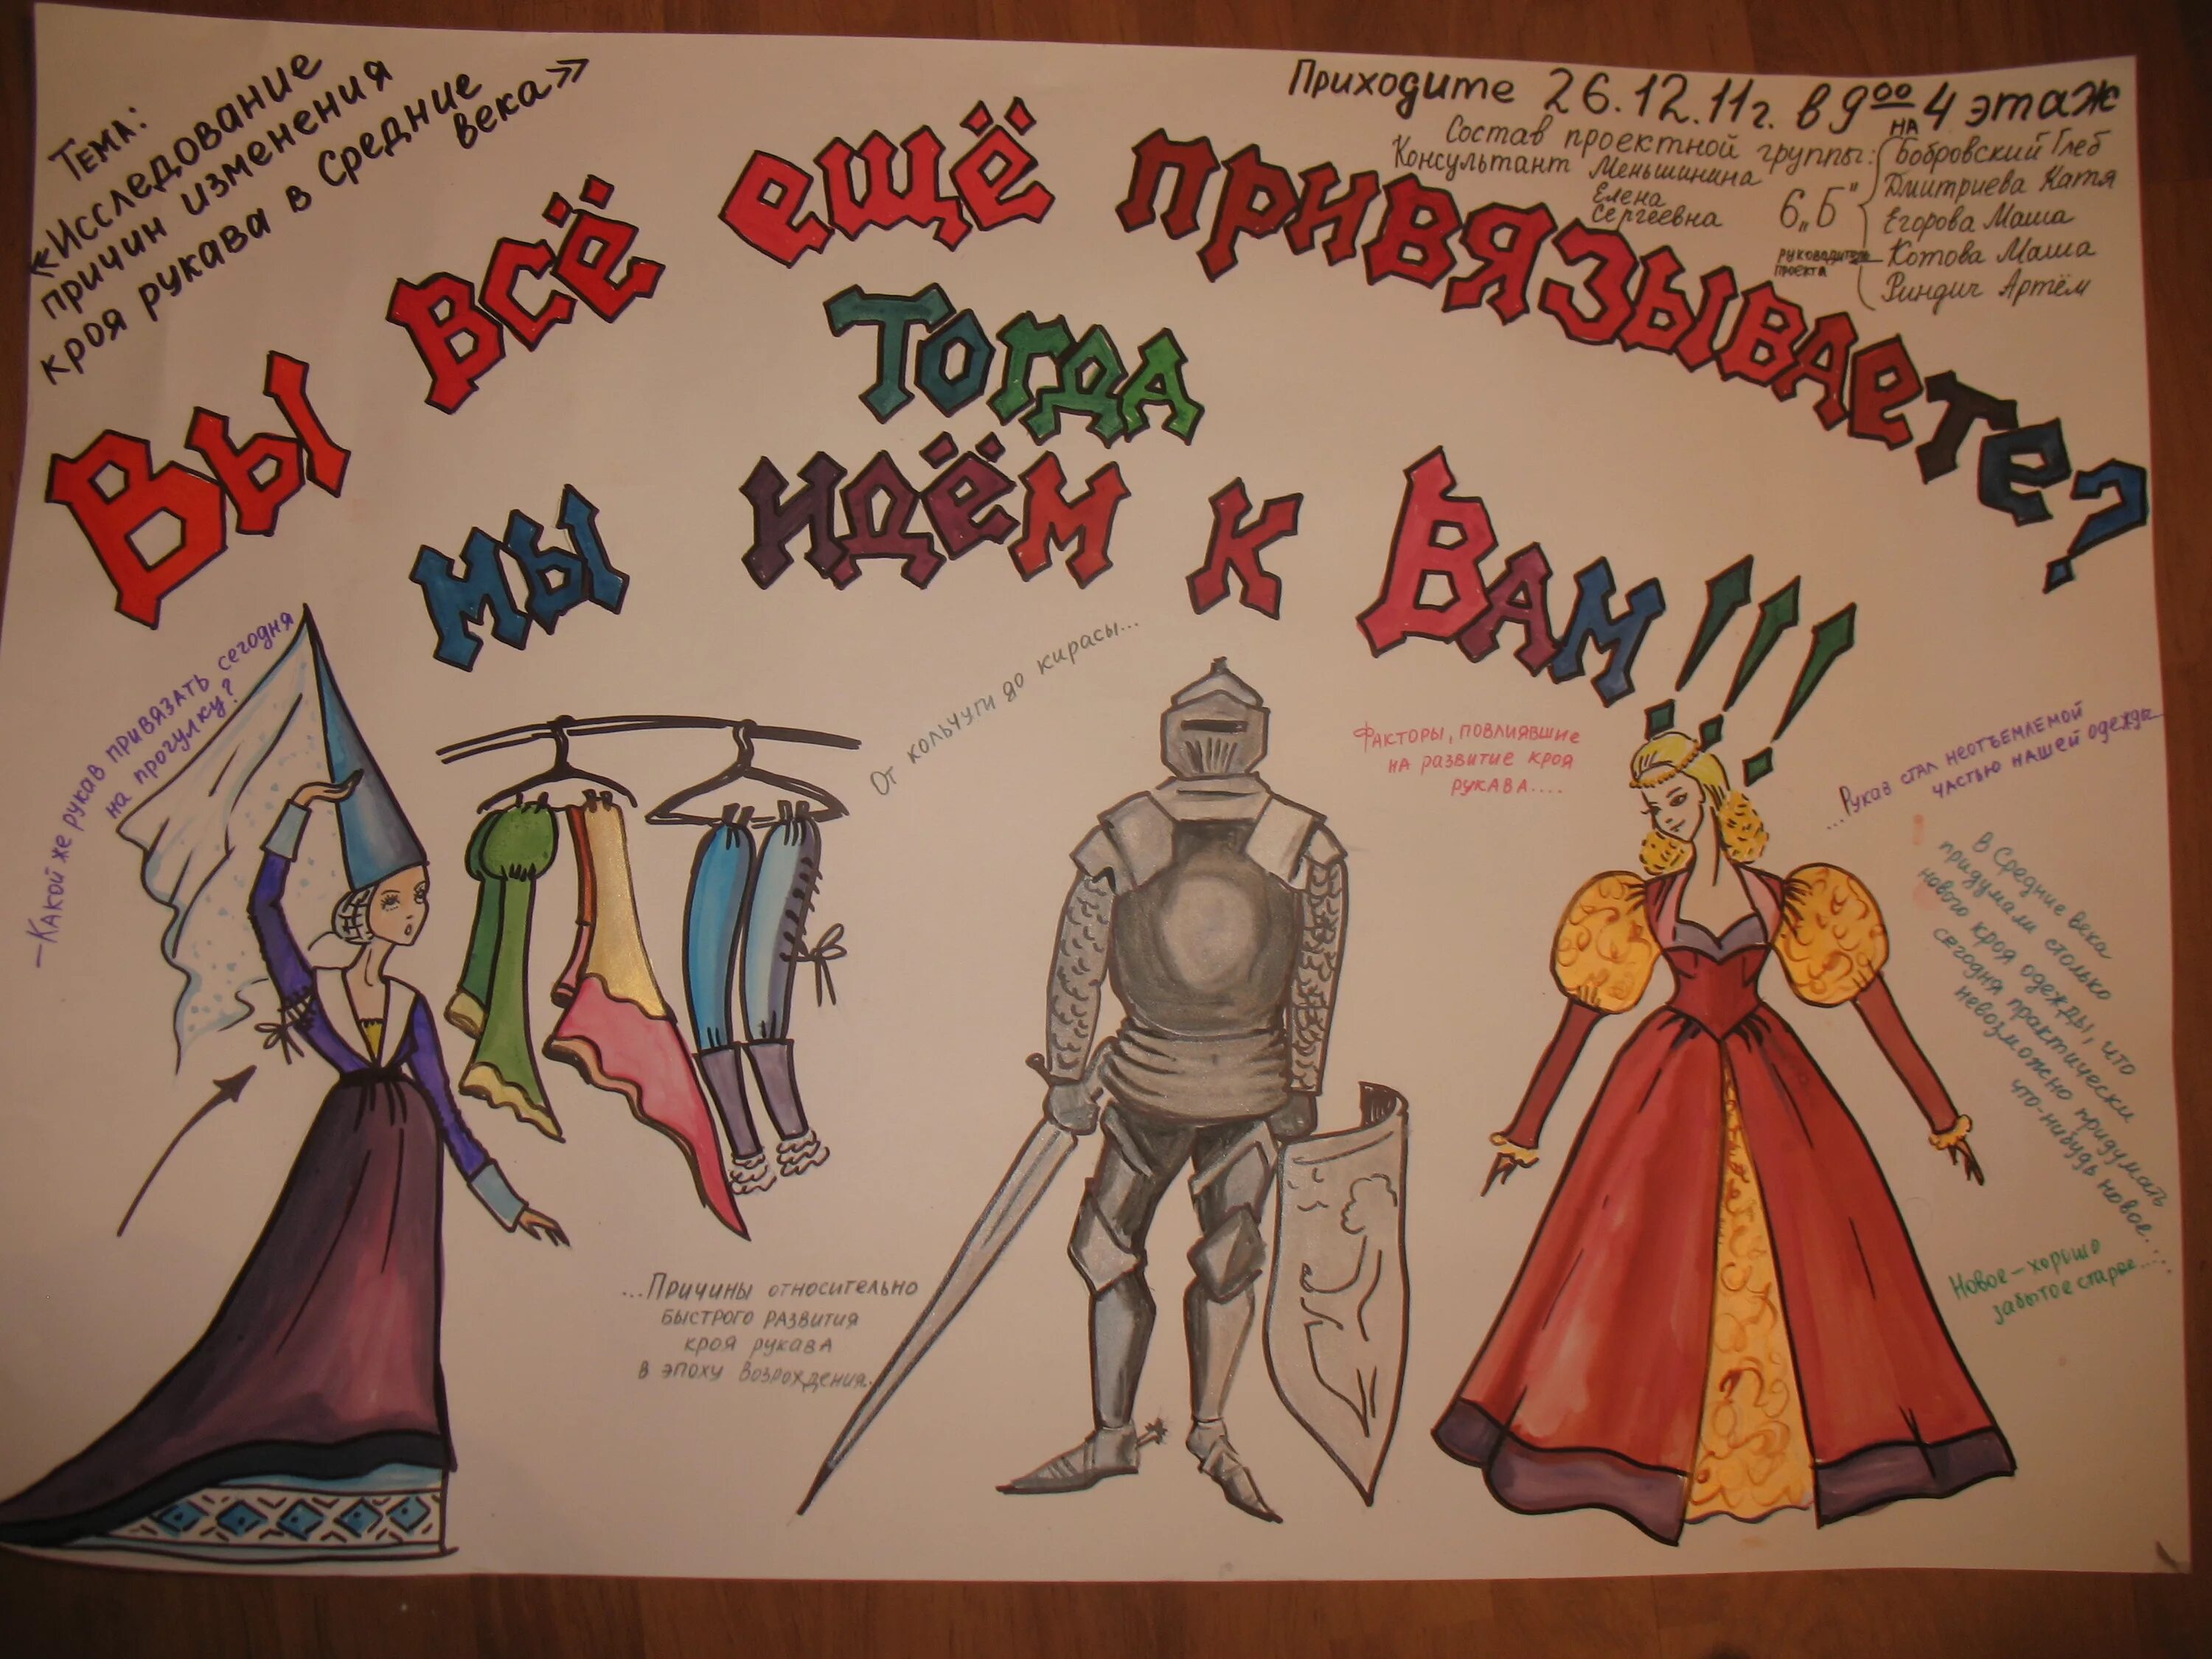 Тема:
«Исследование
причин изменения
кроя рукава в Средние
века»
Приходите 26.12.11г. в 9⁰⁰ на 4 этаж
Состав проектной группы:
Консультант Меньшинина
Елена
Сергеевна
6„Б"
руководитель
проекта
Бобровский Глеб
Дмитриева Катя
Егорова Маша
Котова Маша
Риндич Артём
Вы всё ещё привязываете?
Тогда
мы идём к Вам!!!
—Какой же рукав привязать сегодня
на прогулку?
От кольчуги до кирасы...
Факторы, повлиявшие
на развитие кроя
рукава....
...Рукав стал неотъемлемой
частью нашей одежды
В Средние века
придумали столько
нового кроя одежды, что
сегодня практически
невозможно придумать
что-нибудь новое....
Новое—хорошо
забытое старое....
...Причины относительно
быстрого развития
кроя рукава
в эпоху Возрождения..